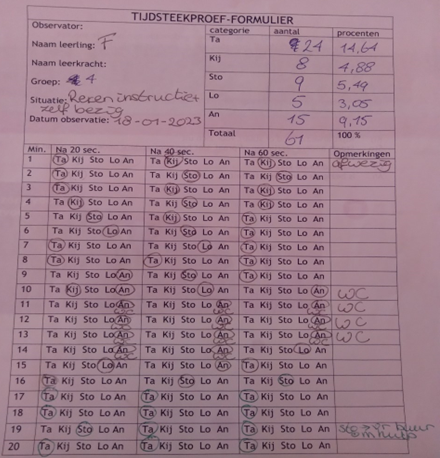 TIJDSTEEKPROEF-FORMULIER
Observator:
Naam leerling: F
Naam leerkracht:
Groep: 4
Situatie: Rekeninstructie +
zelf bezig
Datum observatie: 18-01-2023
categorie aantal procenten
Ta 24 14,64
Kij 8 4,88
Sto 9 5,49
Lo 5 3,05
An 15 9,15
Totaal 61 100 %
Min. Na 20 sec. Na 40 sec. Na 60 sec. Opmerkingen
1 Ta Kij Sto Lo An Ta Kij Sto Lo An Ta Kij Sto Lo An afwezig
2 Ta Kij Sto Lo An Ta Kij Sto Lo An Ta Kij Sto Lo An
3 Ta Kij Sto Lo An Ta Kij Sto Lo An Ta Kij Sto Lo An
4 Ta Kij Sto Lo An Ta Kij Sto Lo An Ta Kij Sto Lo An
5 Ta Kij Sto Lo An Ta Kij Sto Lo An Ta Kij Sto Lo An
6 Ta Kij Sto Lo An Ta Kij Sto Lo An Ta Kij Sto Lo An
7 Ta Kij Sto Lo An Ta Kij Sto Lo An Ta Kij Sto Lo An
8 Ta Kij Sto Lo An Ta Kij Sto Lo An Ta Kij Sto Lo An
9 Ta Kij Sto Lo An Ta Kij Sto Lo An Ta Kij Sto Lo An
10 Ta Kij Sto Lo An Ta Kij Sto Lo An Ta Kij Sto Lo An WC
11 Ta Kij Sto Lo An Ta Kij Sto Lo An Ta Kij Sto Lo An WC
12 Ta Kij Sto Lo An Ta Kij Sto Lo An Ta Kij Sto Lo An WC
13 Ta Kij Sto Lo An Ta Kij Sto Lo An Ta Kij Sto Lo An WC
14 Ta Kij Sto Lo An Ta Kij Sto Lo An Ta Kij Sto Lo An
15 Ta Kij Sto Lo An Ta Kij Sto Lo An Ta Kij Sto Lo An
16 Ta Kij Sto Lo An Ta Kij Sto Lo An Ta Kij Sto Lo An
17 Ta Kij Sto Lo An Ta Kij Sto Lo An Ta Kij Sto Lo An
18 Ta Kij Sto Lo An Ta Kij Sto Lo An Ta Kij Sto Lo An
19 Ta Kij Sto Lo An Ta Kij Sto Lo An Ta Kij Sto Lo An zijn buur
om hulp
20 Ta Kij Sto Lo An Ta Kij Sto Lo An Ta Kij Sto Lo An